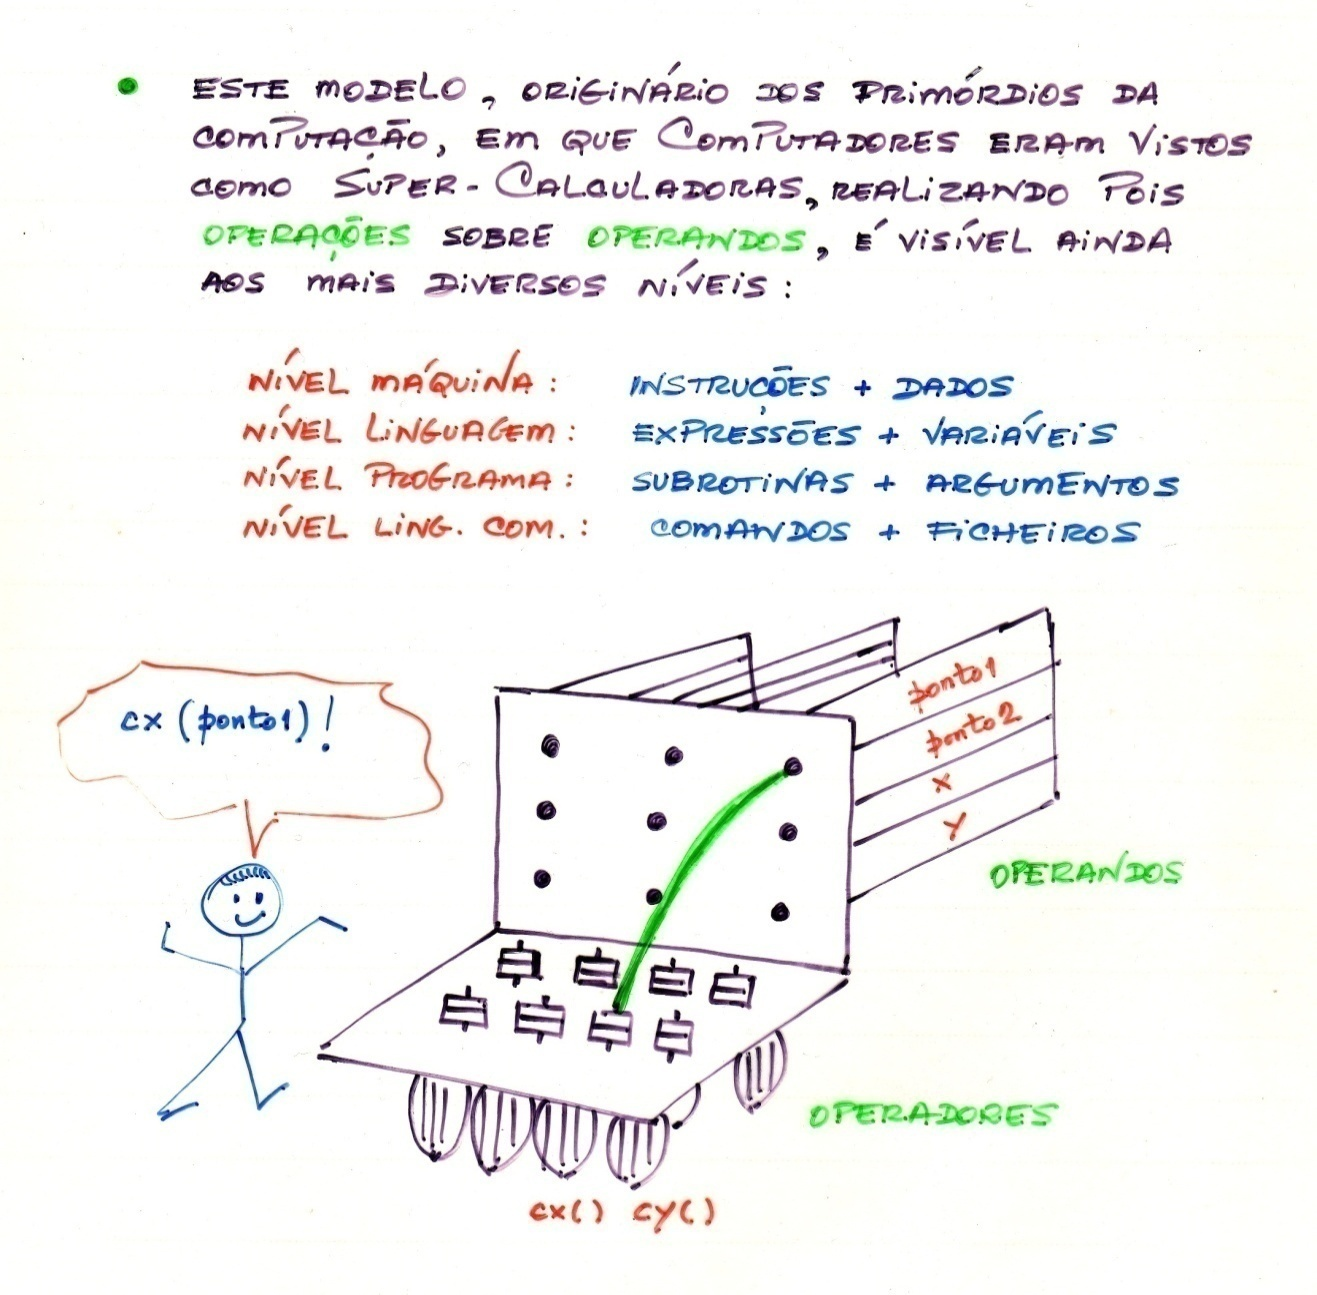 ESTE MODELO, ORIGINÁRIO DOS PRIMÓRDIOS DA
COMPUTAÇÃO, EM QUE COMPUTADORES ERAM VISTOS
COMO SUPER-CALCULADORAS, REALIZANDO POIS
OPERAÇÕES SOBRE OPERANDOS, É VISÍVEL AINDA
AOS MAIS DIVERSOS NÍVEIS:
NÍVEL MÁQUINA: INSTRUÇÕES + DADOS
NÍVEL LINGUAGEM: EXPRESSÕES + VARIÁVEIS
NÍVEL PROGRAMA: SUBROTINAS + ARGUMENTOS
NÍVEL LING. COM.: COMANDOS + FICHEIROS
cx (ponto1)!
ponto1
ponto2
x
y
OPERANDOS
OPERADORES
cx() cy()